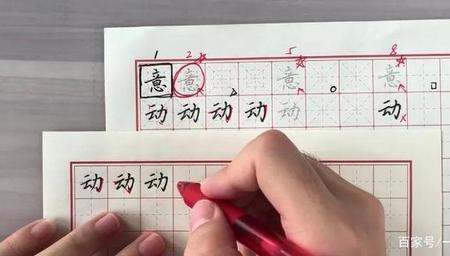 1 2 5 8
意 意 意 意
动 动 动 动 动 动
动 动 动
百家号/一